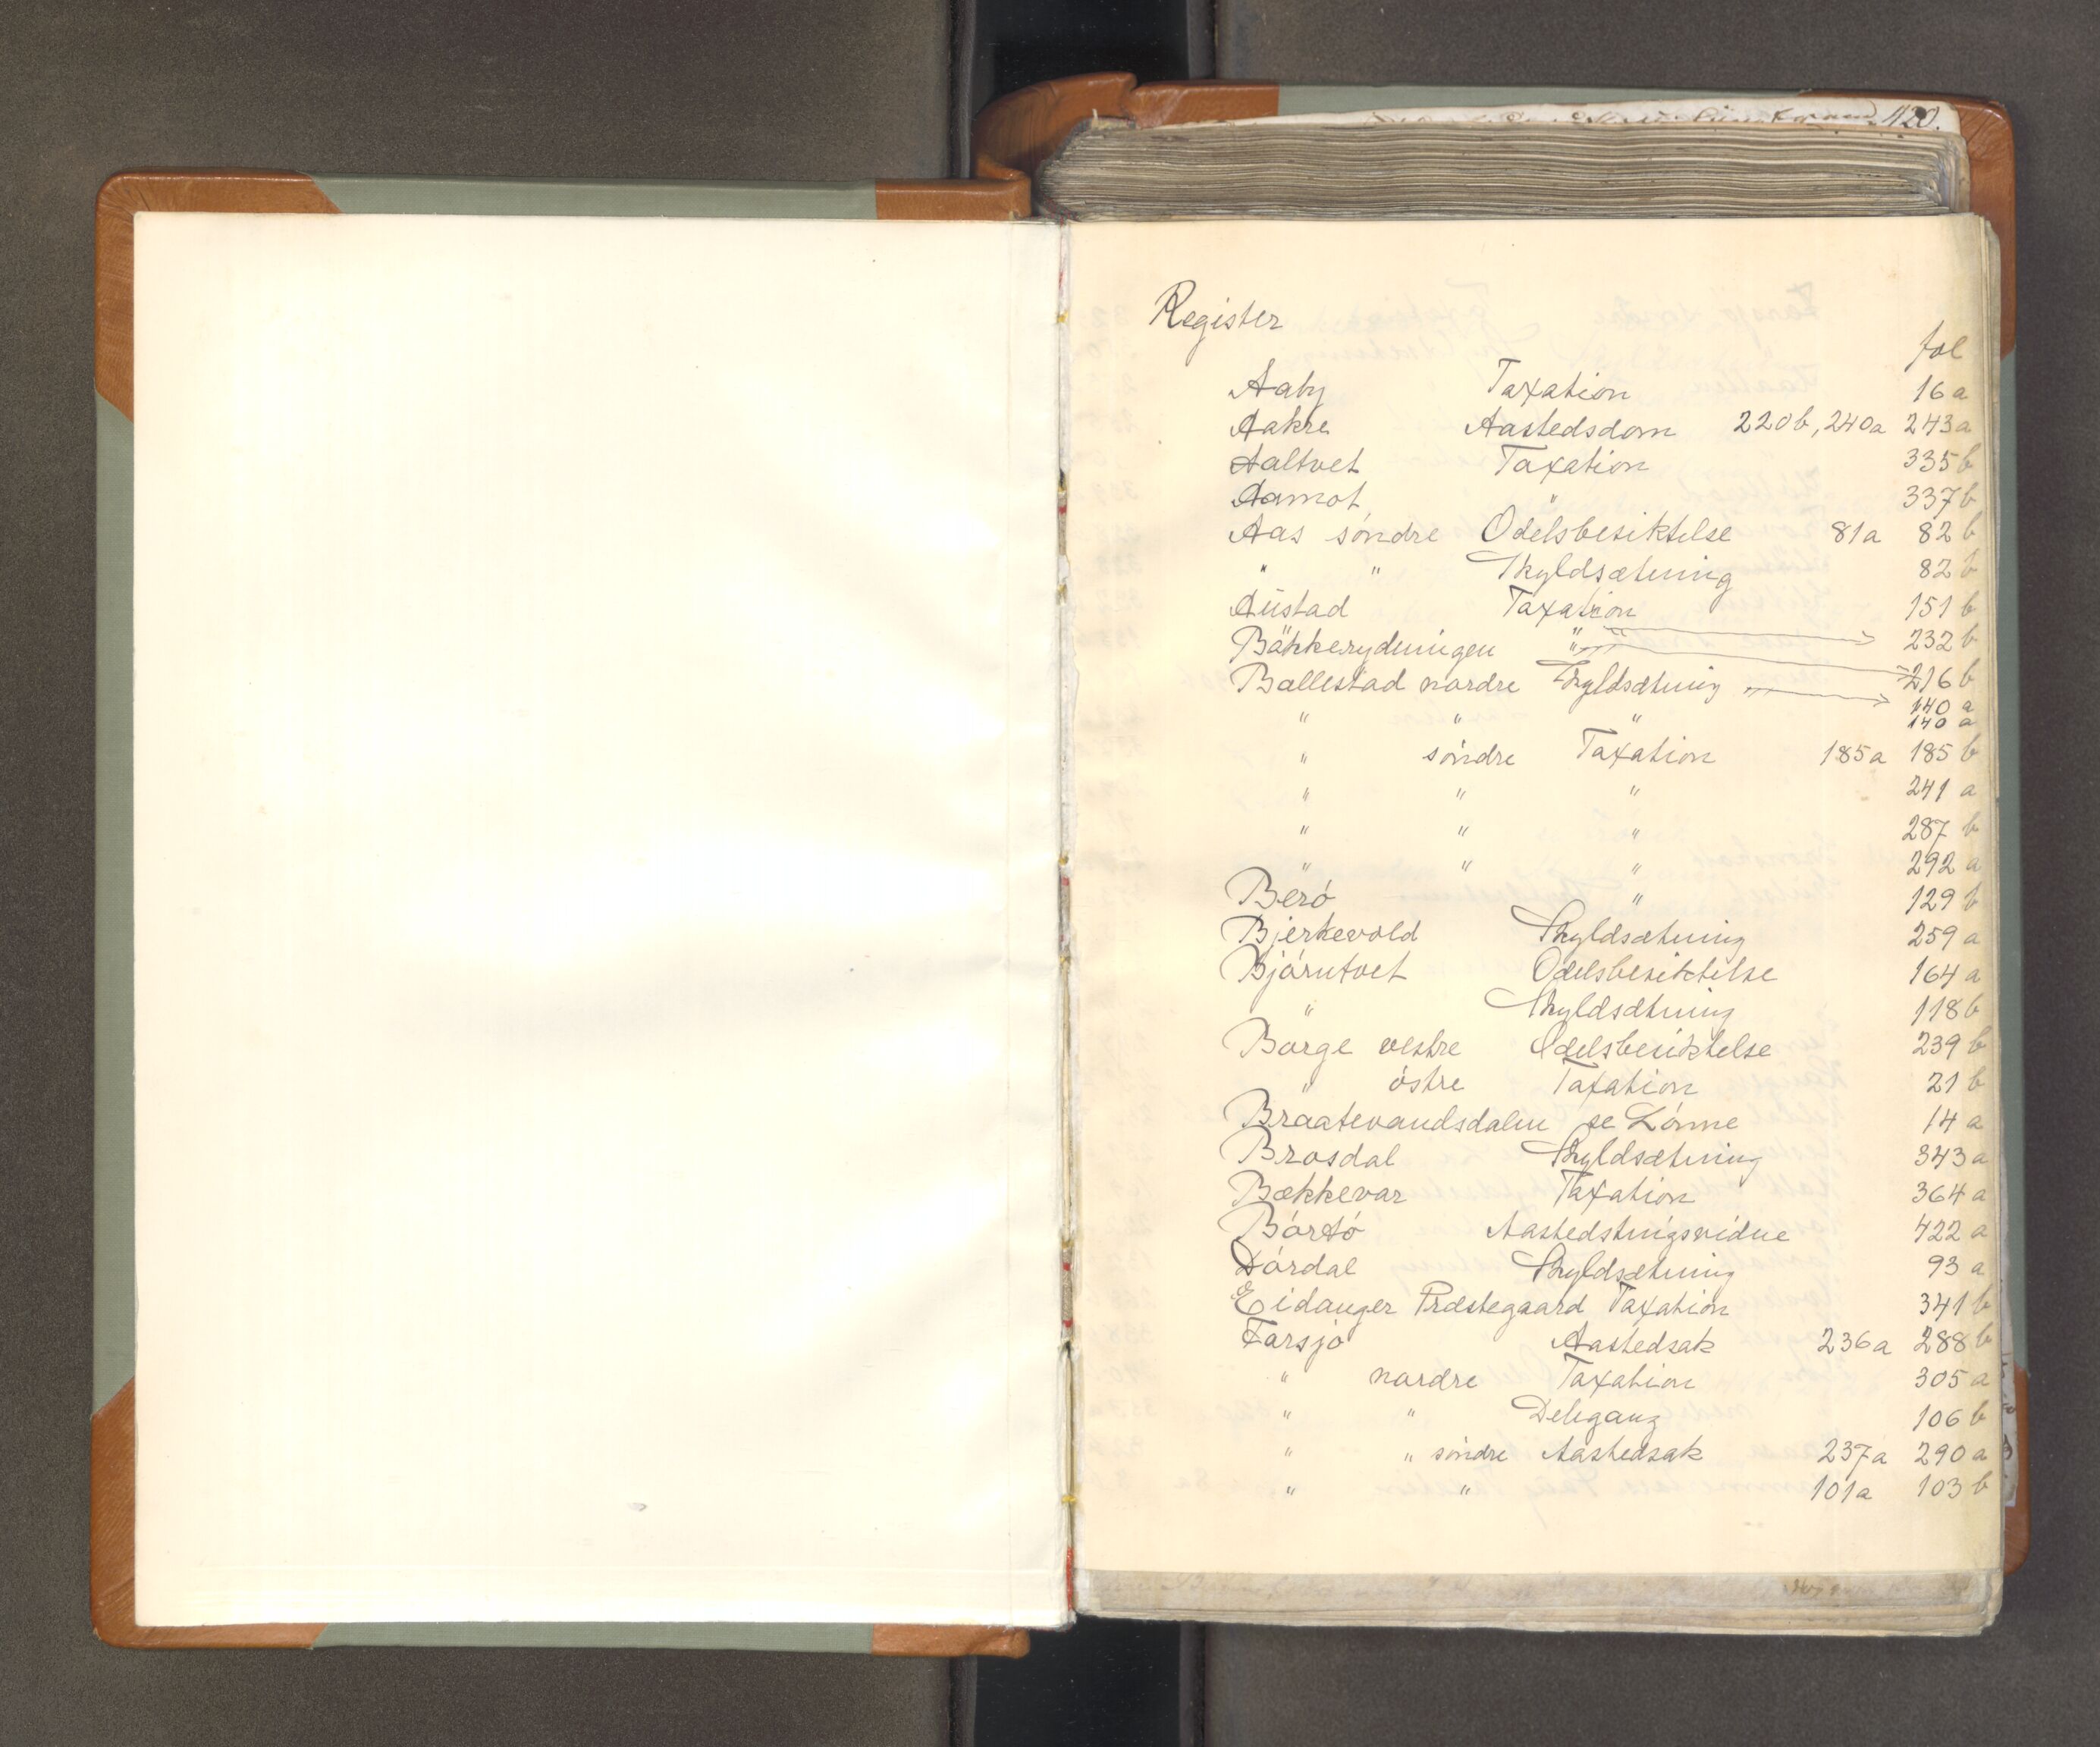 420.
Register
fol
Aaby Taxation 16 a
Aakre Aastedsdom 220b, 240a 243a
Aaltvet Taxation 335 b
Aamot " 337 b
Aas söndre Odelsbesiktelse 81a 82 b
" " Skyldsætning 82 b
Austad Taxation 151 b
Bäkkerydningen " 232 b
Ballestad nordre Skyldsætning 216 b
140 a
" " " 140 a
" söndre Taxation 185a 185 b
" " " 241 a
" " " 287 b
" " " 292 a
Berö " 129 b
Bjerkevold Skyldsætning 259 a
Bjórntvet Odelsbesiktelse 164 a
" Skyldsætning 118 b
Borge vestre Odelsbesiktelse 239 b
" östre Taxation 21 b
Braatevandsdalen se Lónne 14 a
Brosdal Skyldsætning 343 a
Bækkevar Taxation 364 a
Bórtó Aastedstingsvidne 422 a
Dórdal Skyldsætning 93 a
Eidanger Præstegaard Taxation 341 b
Farsjó Aastedsak 236a 288 b
" nordre Taxation 305 a
" " Delegang 106 b
" " söndre Aastedsak 237a 290 a
" " 101a 103 b